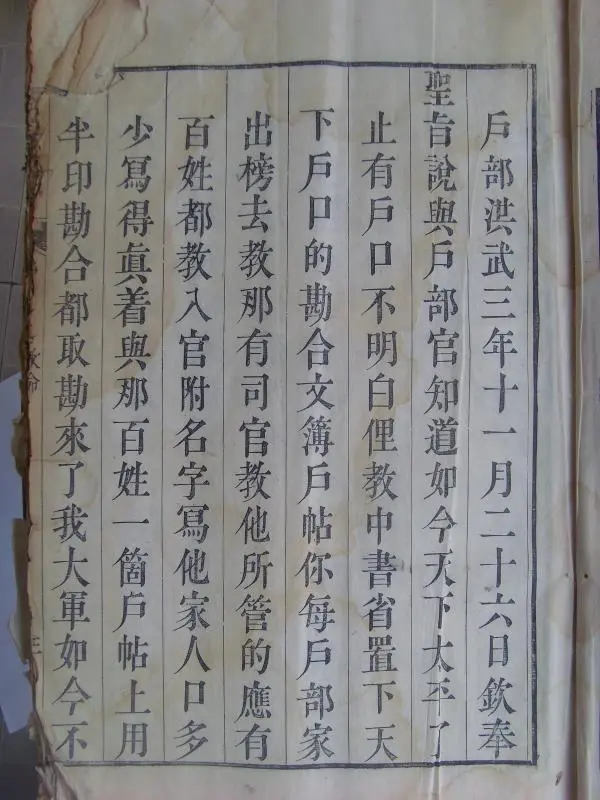 戶部洪武三年十一月二十六日欽奉
聖旨說與戶部官知道如今天下太平了
止有戶口不明白俚教中書省置下天
下戶口的勘合文簿戶帖你每戶部家
出榜去教那有司官教他所管的應有
百姓都教入官附名字寫他家人口多
少寫得眞着與那百姓一箇戶帖上用
半印勘合都取勘來了我大軍如今不